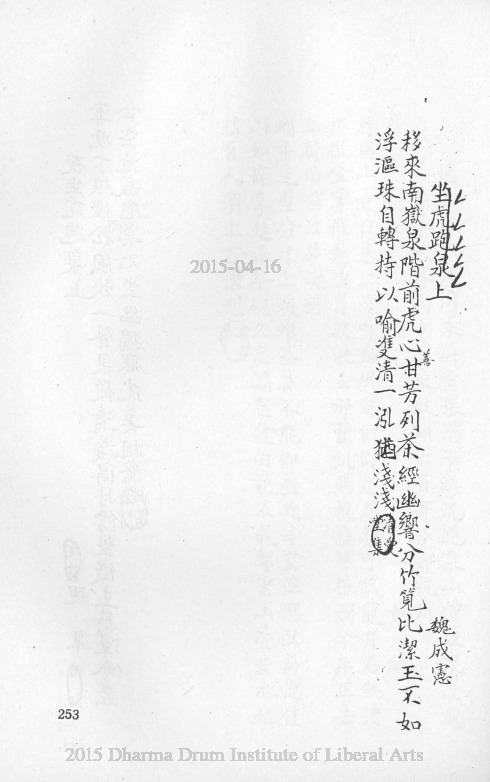 坐虎跑泉上
魏成憲
移來南嶽泉階前虎心甘芳列茶經幽響分竹筧比潔玉不如
善
浮漚珠自轉持以喻雙清一泓猶淺淺
清愛
堂集
2015-04-16
253
2015 Dharma Drum Institute of Liberal Arts